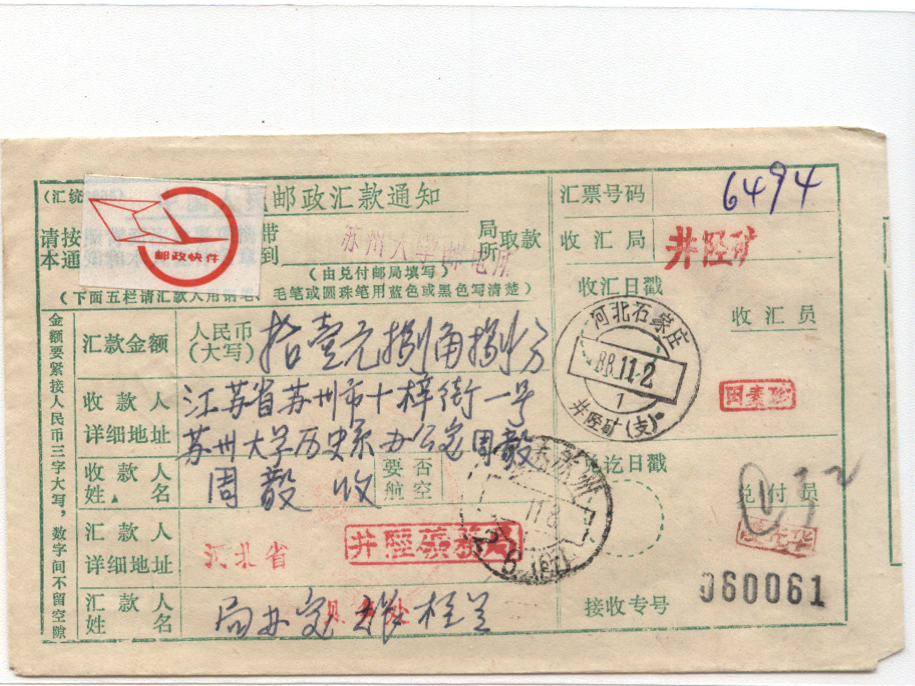 (汇统
邮政汇款通知
汇票号码 6494
请按 带 局 取款
本通 到 苏州大学邮电所 所
邮政快件
(由兑付邮局填写)
收汇局 井陉矿
(下面五栏请汇款人用钢笔、毛笔或圆珠笔用蓝色或黑色写清楚)
收汇日戳
收汇员
河北石家庄
88.11.2
1
井陉矿(支)
金额要紧接人民币三字大写,数字间不留空隙
汇款金额 人民币(大写) 拾壹元捌角捌分
收款人详细地址 江苏省苏州市十梓街一号
苏州大学历史系办公室周毅
收款人姓名 周毅收 要否航空
讫日戳
兑付员
苏州
11.8
汇款人详细地址 河北省 井陘矿务局
汇款人姓名 局办室 桂兰
接收专号 060061